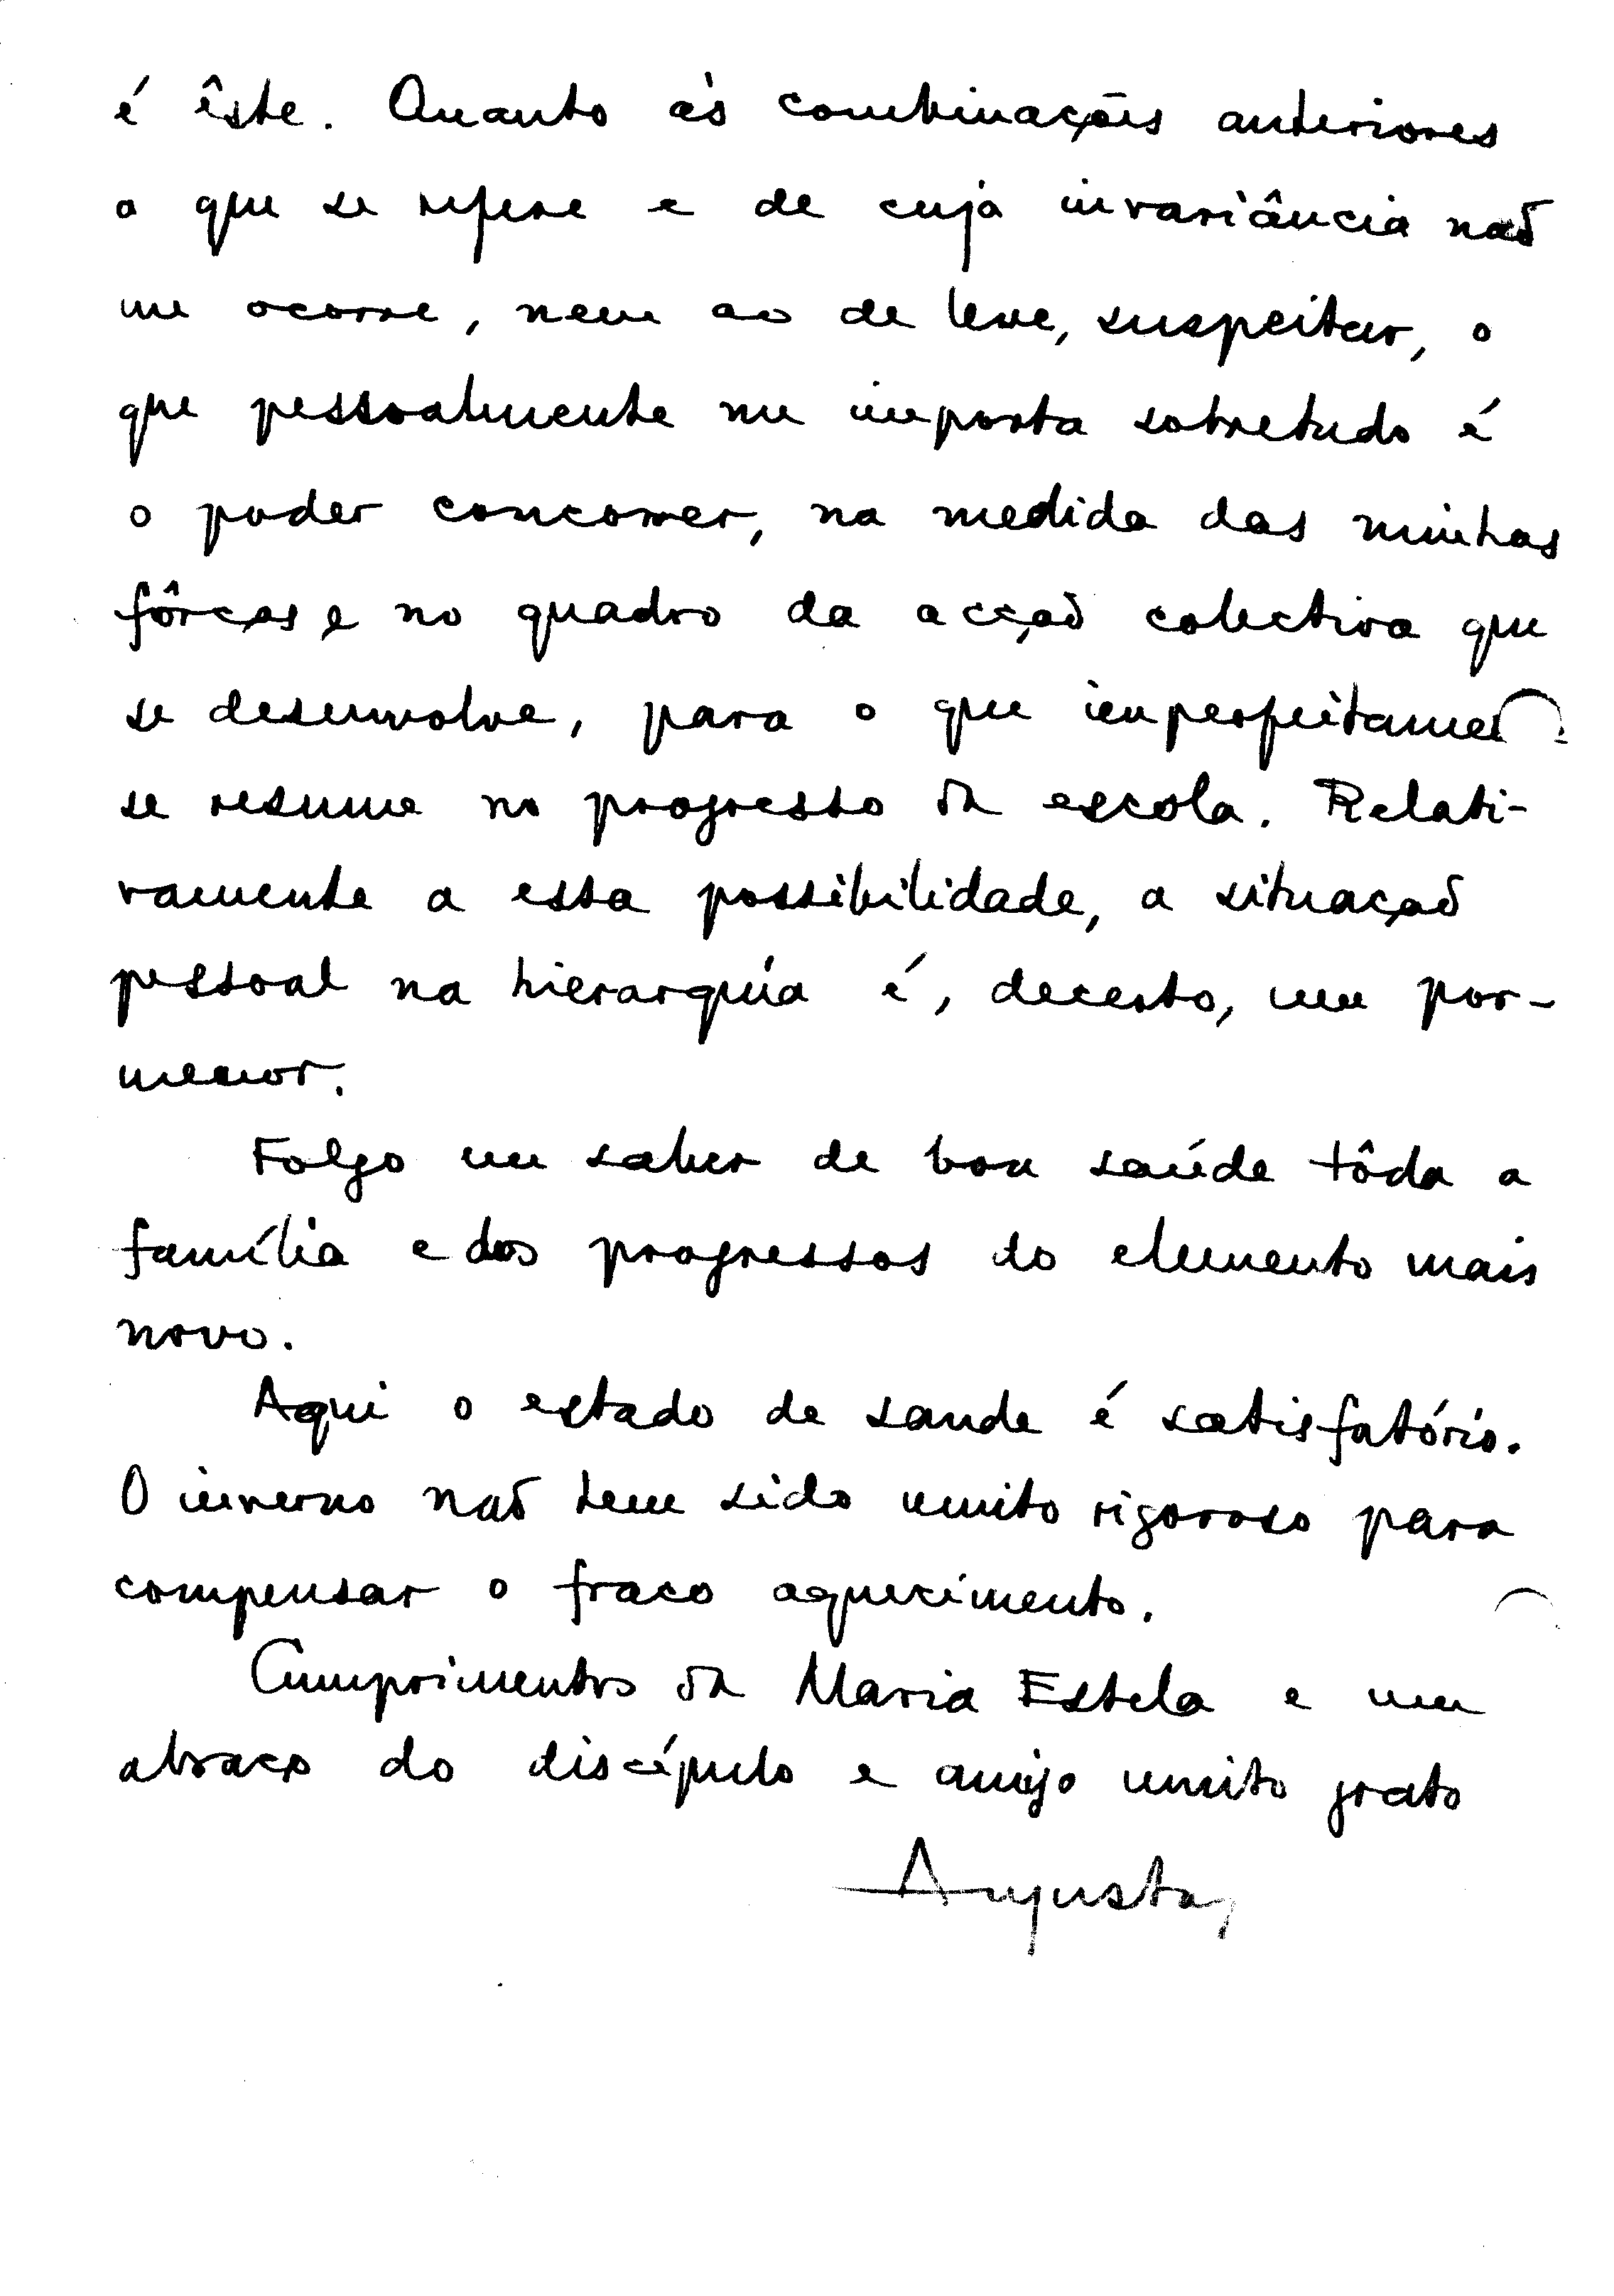 é êste. Quanto às combinações anteriores
a que se refere e de cuja invariância não
me ocorre, nem ao de leve, suspeitar, o
que pessoalmente me importa sobretudo é
o poder concorrer, na medida das minhas
fôrças e no quadro da acção colectiva que
se desenvolve, para o que imperfeitame
se resume no progresso da escola. Relati-
vamente a essa possibilidade, a situação
pessoal na hierarquia é, decerto, um por-
menor.
Folgo em saber de boa saúde tôda a
família e dos progressos do elemento mais
novo.
Aqui o estado de saude é satisfatório.
O inverno não tem sido muito rigoroso para
compensar o fraco aquecimento.
Cumprimentos da Maria Estela e um
abraço do discípulo e amigo muito grato
Augusto,